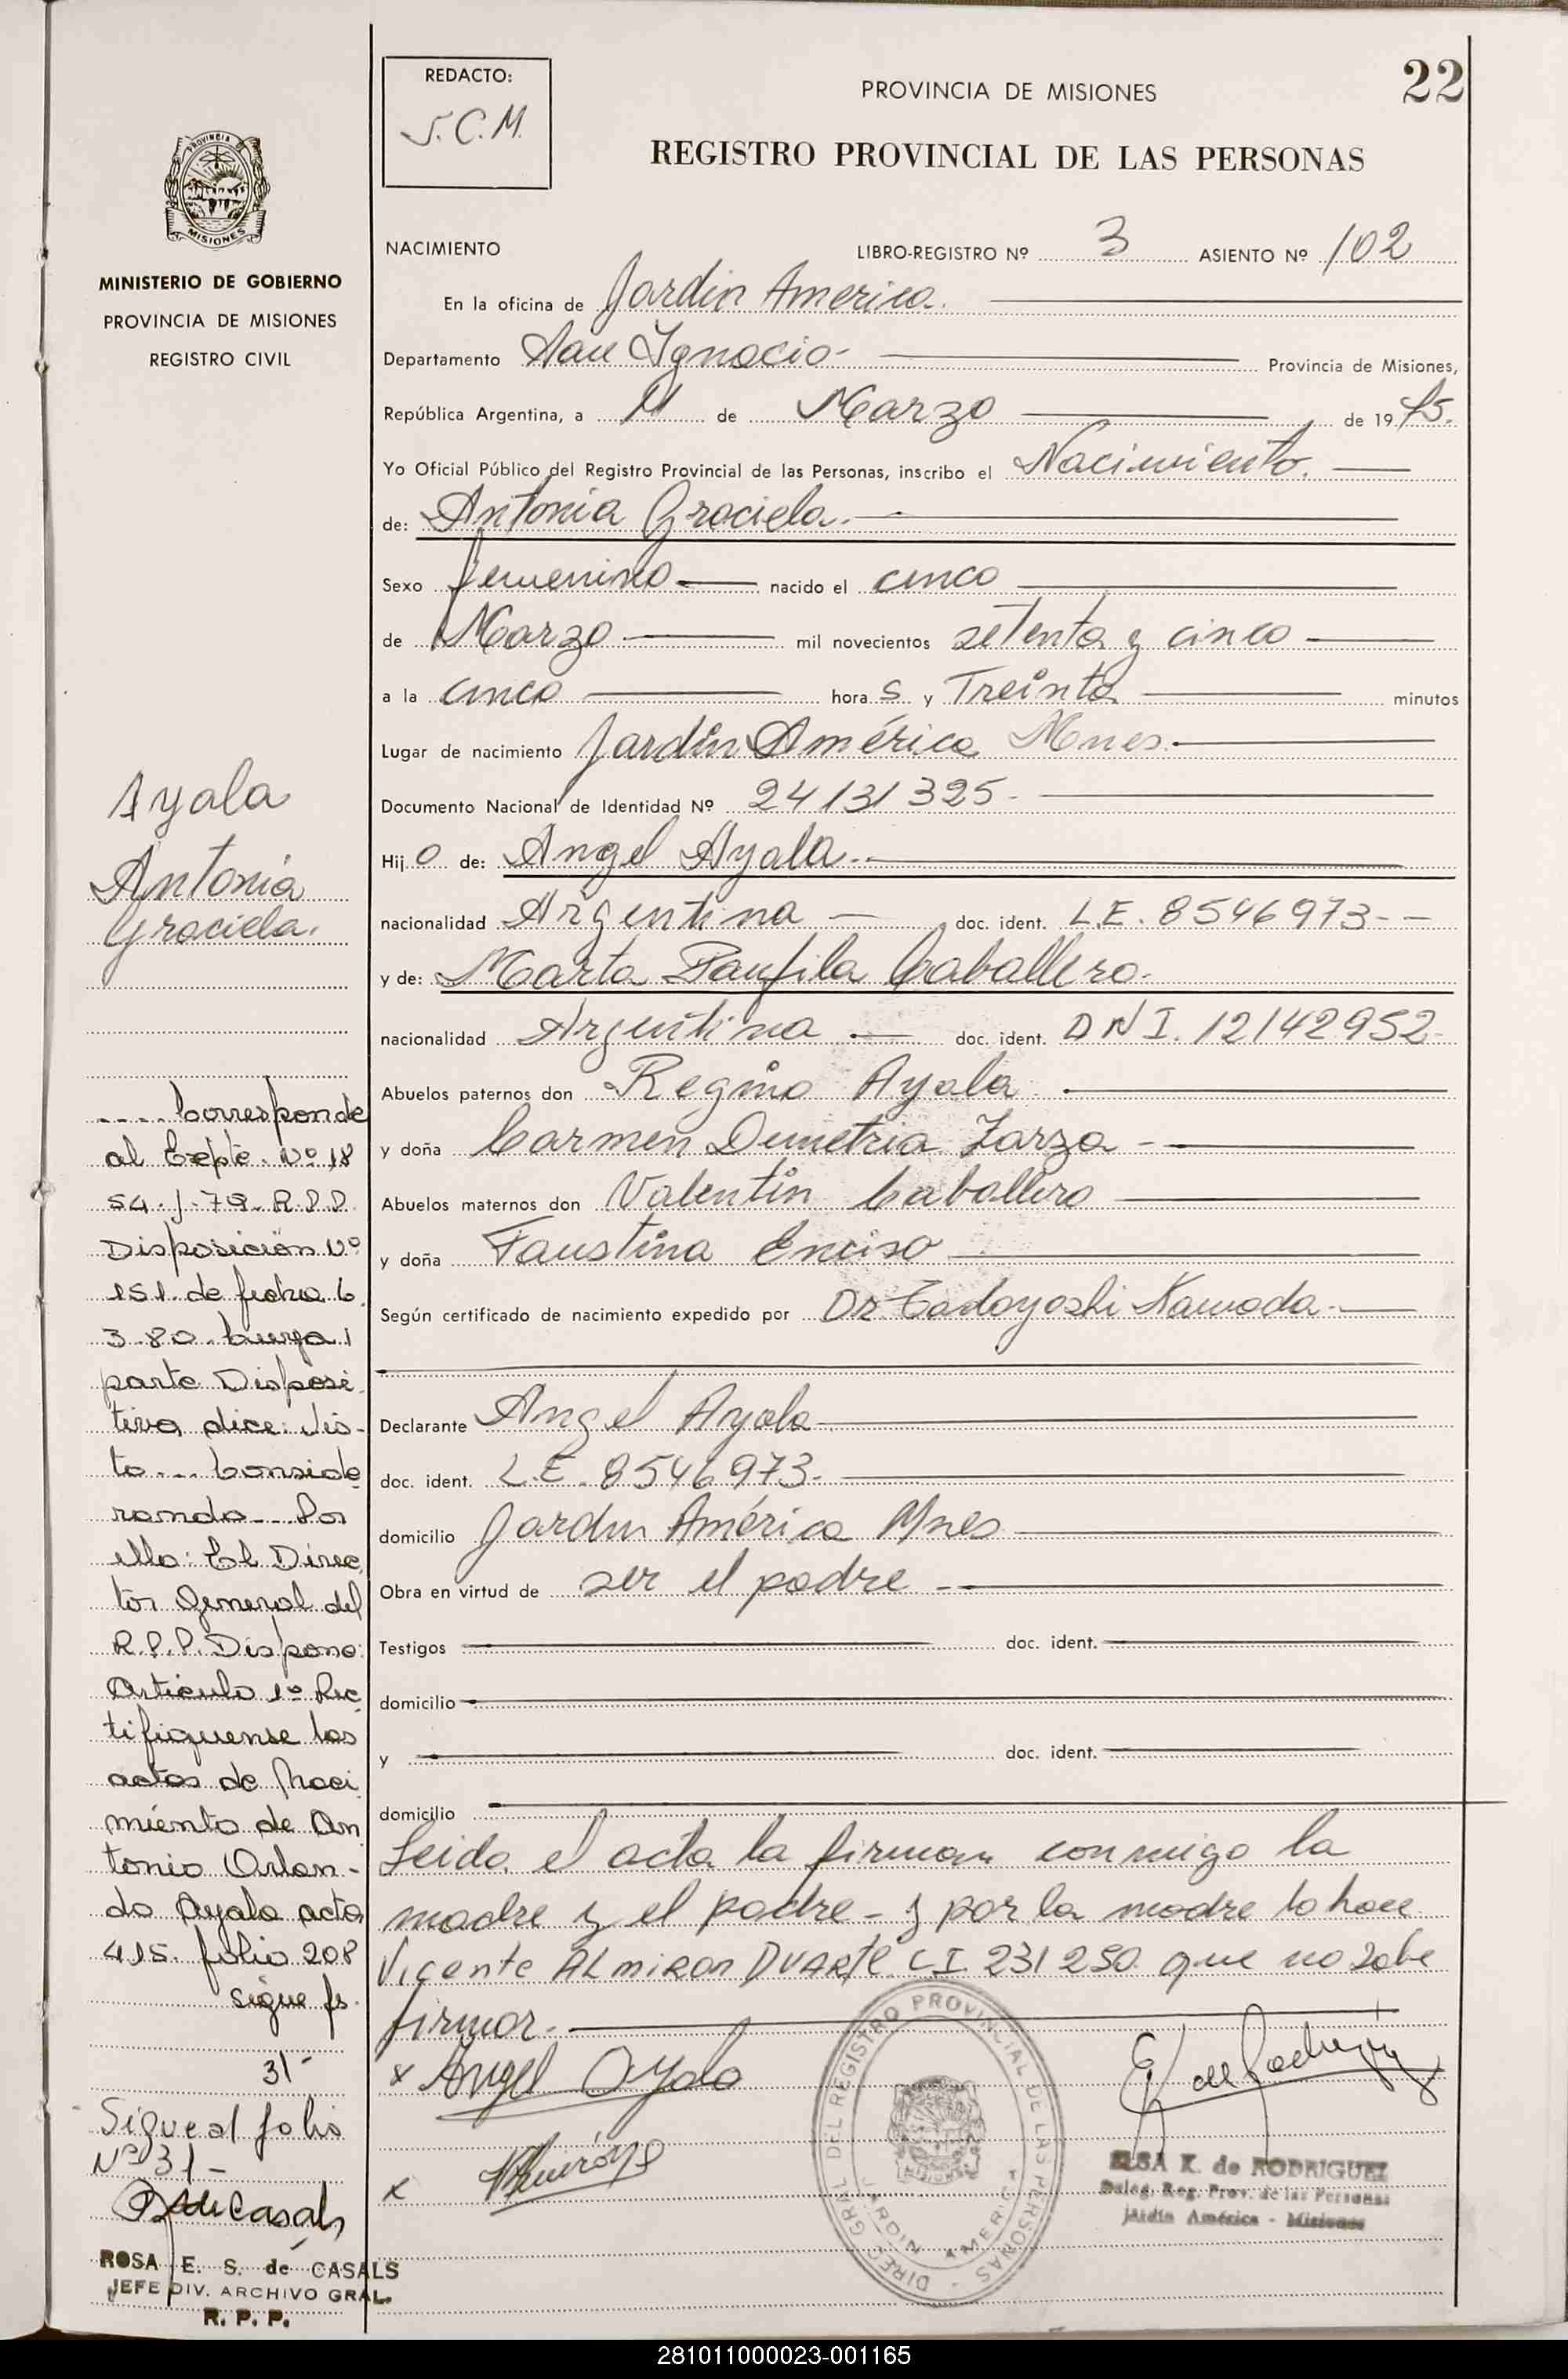 22
REDACTO:
J.C.M.
PROVINCIA DE MISIONES
REGISTRO PROVINCIAL DE LAS PERSONAS
PROVINCIA
MISIONES
MINISTERIO DE GOBIERNO
PROVINCIA DE MISIONES
REGISTRO CIVIL
NACIMIENTO LIBRO-REGISTRO Nº 3 ASIENTO Nº 102
En la oficina de Jardin America.
Departamento San Ignacio- Provincia de Misiones,
República Argentina, a 11 de Marzo de 1975.
Yo Oficial Público del Registro Provincial de las Personas, inscribo el Nacimiento.
de: Antonia Graciela.
Sexo femenino nacido el cinco
de Marzo mil novecientos setenta y cinco
a la cinco hora s y Treinta minutos
Lugar de nacimiento Jardin América Mnes.
Documento Nacional de Identidad Nº 24131325-
Hij o de: Angel Ayala.
nacionalidad Argentina doc. ident. L.E. 8546973--
y de: Marta Panfila Caballero.
nacionalidad Argentina doc. ident. DNI. 12142952-
Abuelos paternos don Regino Ayala
y doña Carmen Demetria Zarza
Abuelos maternos don Valentin Caballero
y doña Faustina Enciso
Según certificado de nacimiento expedido por Dr Tadayoshi Kamada.
Declarante Angel Ayala
doc. ident. L.E. 8546973.
domicilio Jardin América Mnes
Obra en virtud de ser el padre
Testigos doc. ident.
domicilio
y doc. ident.
domicilio
Leida el acta la firman conmigo la
madre y el padre - y por la madre lo hace
Vicente ALmiRon DUARTE CI 231250 que no sabe
firmar.
x Angel Ayala
x
DIREC. GRAL. DEL REGISTRO PROVINCIAL DE LAS PERSONAS
JARDIN AMERICA
MISIONES
ELSA K. de RODRIGUEZ
Deleg. Reg. Prov. de las Personas
Jardín América - Misiones
Ayala
Antonia
Graciela.
.... Corresponde
al Expte. Nº 18
54.J-79. R.P.P.
Disposición Nº
151. de fecha 6.
3-80. Cuya
parte Disposi
tiva dice: Vis-
to... Conside
rando... Por
ello: El Direc
tor General del
R.P.P. Dispone:
Articulo 1º Rec
tifiquense las
actas de Naci
miento de An
tonio Orlan-
do Ayala acta
415. folio 208
sigue fs.
31-
Sigue al folio
Nº 31-
ROSA E. S. de CASALS
JEFE DIV. ARCHIVO GRAL.
R. P. P.
281011000023-001165